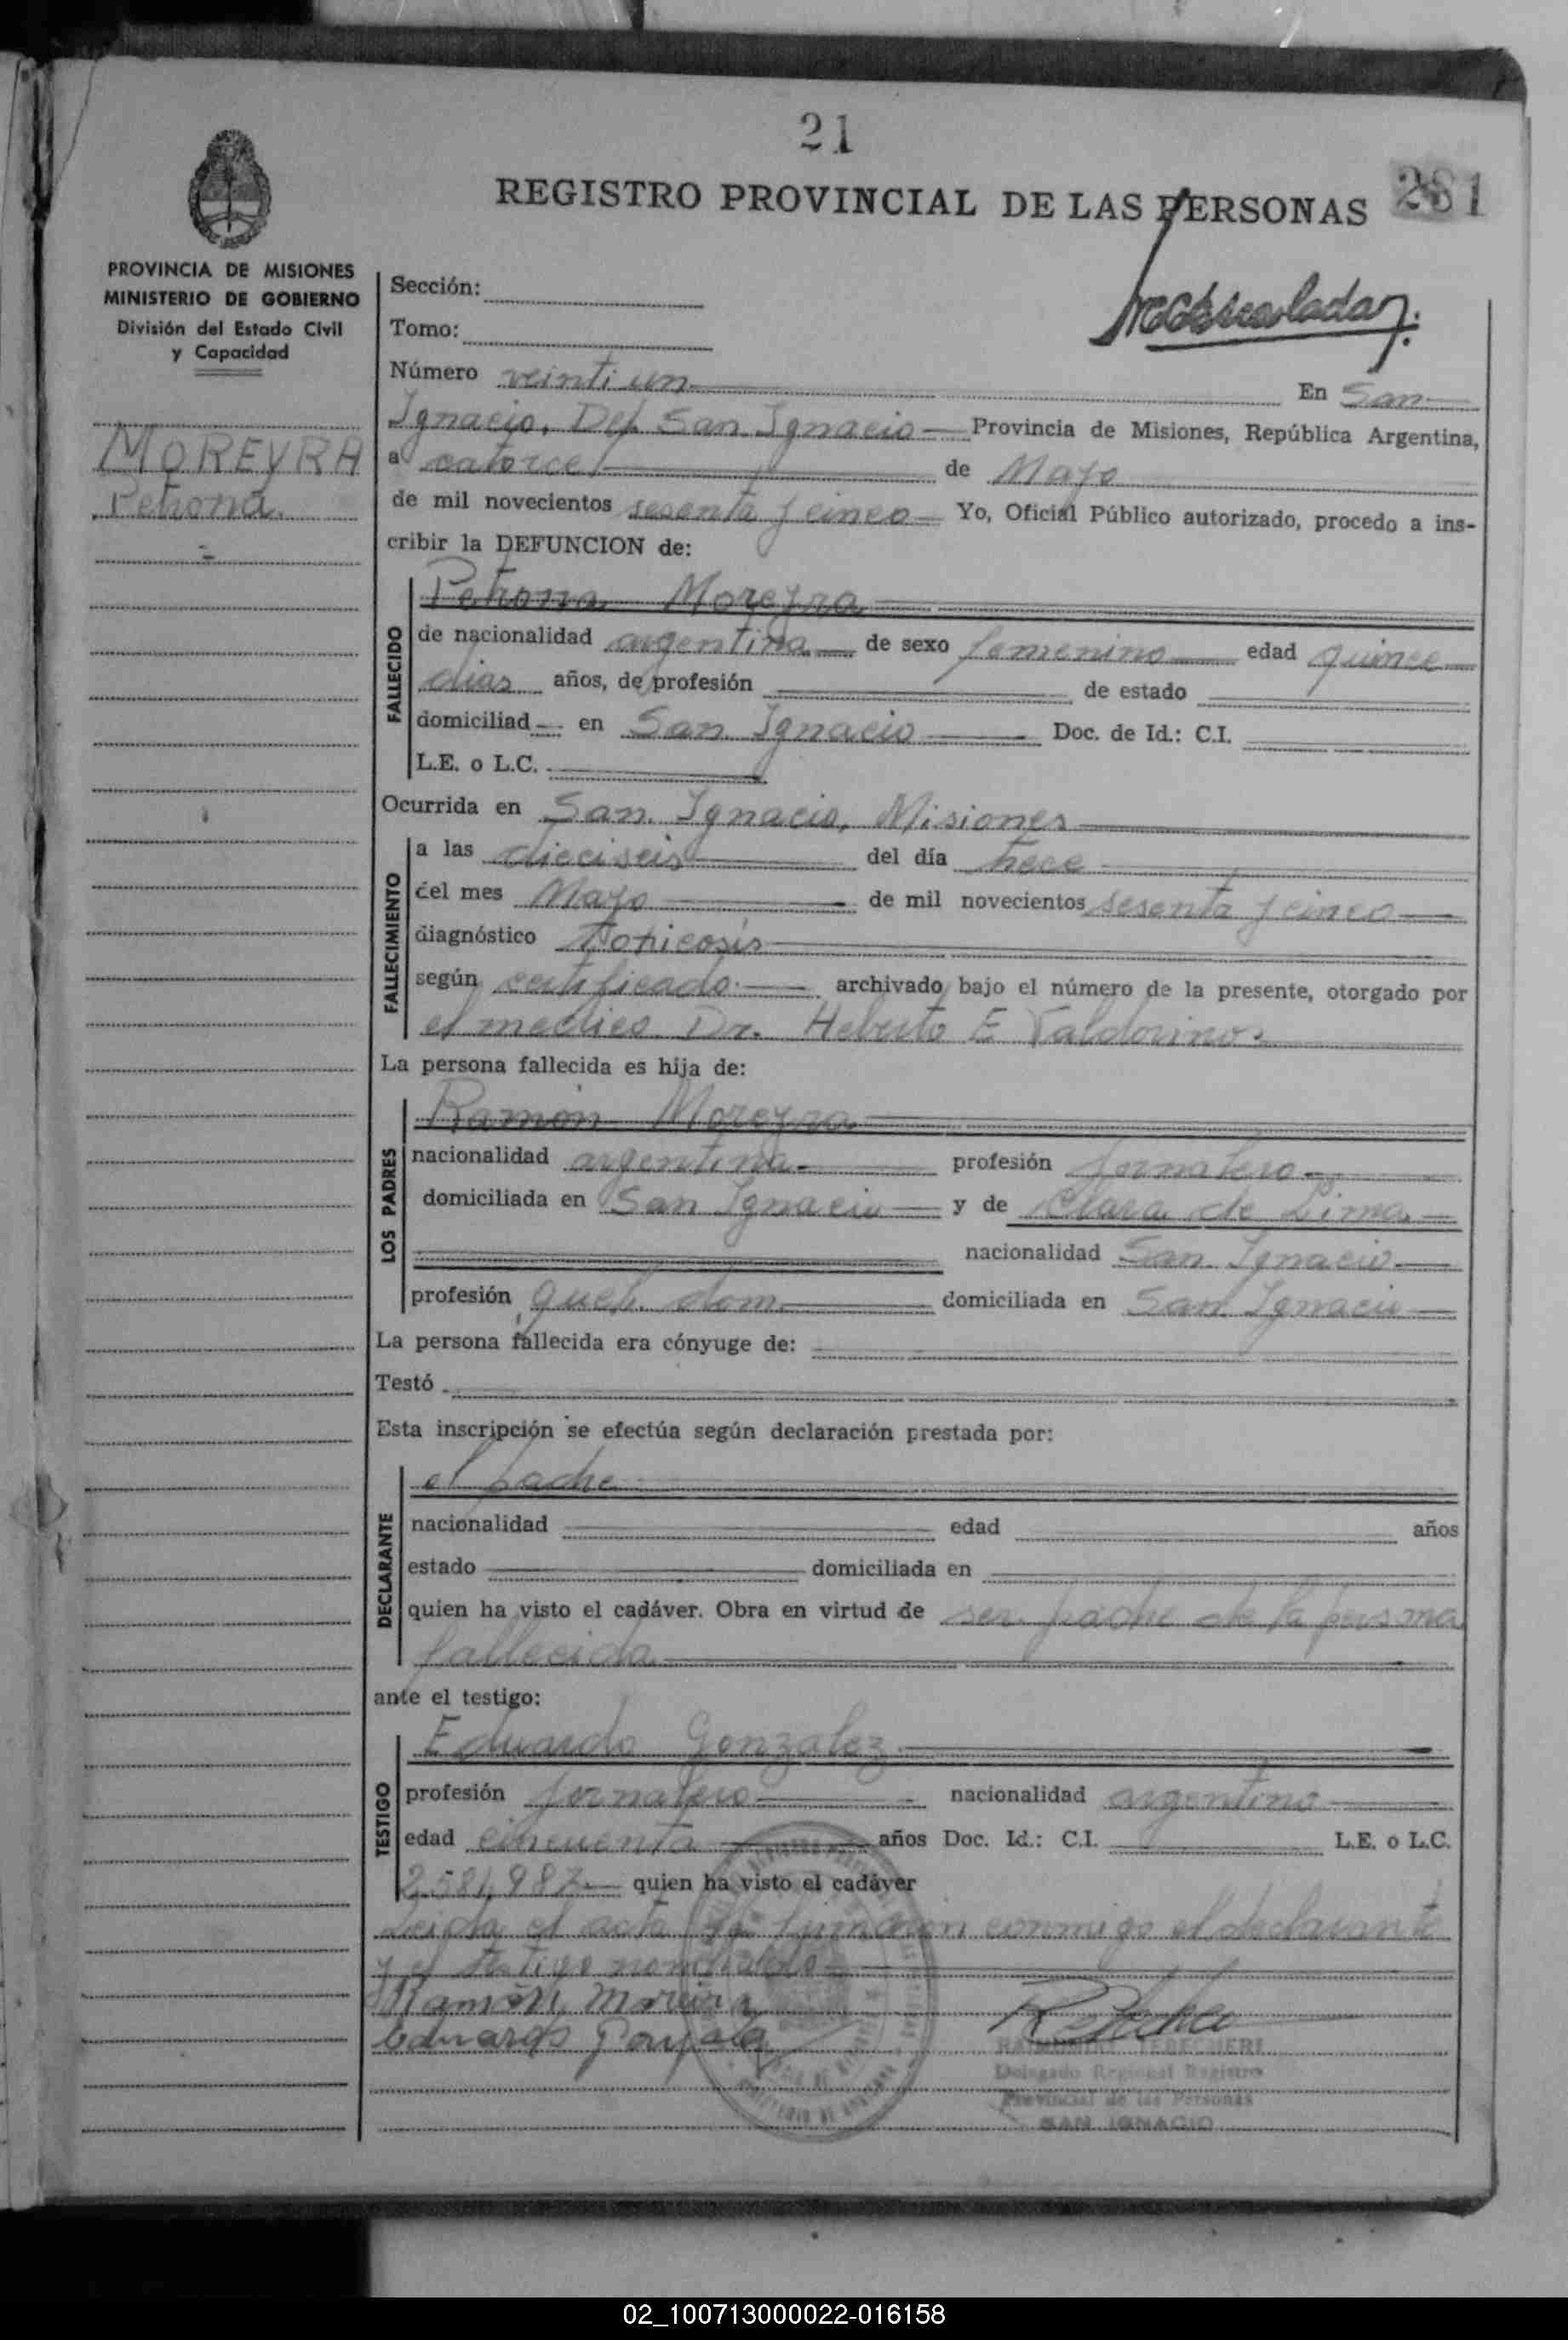 21
REGISTRO PROVINCIAL DE LAS PERSONAS
281
PROVINCIA DE MISIONES
MINISTERIO DE GOBIERNO
División del Estado Civil
y Capacidad
MOREYRA
Petrona
Sección:
Tomo:
Número veintiun En San
Ignacio, Dep. San Ignacio Provincia de Misiones, República Argentina,
a catorce de Mayo
de mil novecientos sesenta y cinco Yo, Oficial Público autorizado, procedo a ins-
cribir la DEFUNCION de:
FALLECIDO
Petrona Moreyra
de nacionalidad argentina de sexo femenino edad quince
dias años, de profesión de estado
domiciliad en San Ignacio Doc. de Id.: C.I.
L.E. o L.C.
Ocurrida en San Ignacio, Misiones
FALLECIMIENTO
a las dieciseis del día trece
del mes Mayo de mil novecientos sesenta y cinco
diagnóstico
según certificado archivado bajo el número de la presente, otorgado por
el medico Dr. Heberto E Valdovinos
La persona fallecida es hija de:
LOS PADRES
Ramón Moreyra
nacionalidad argentina profesión jornalero
domiciliada en San Ignacio y de Clara de Lima
nacionalidad San Ignacio
profesión queh. dom. domiciliada en San Ignacio
La persona fallecida era cónyuge de:
Testó
Esta inscripción se efectúa según declaración prestada por:
DECLARANTE
el padre
nacionalidad edad años
estado domiciliada en
quien ha visto el cadáver. Obra en virtud de ser padre de la persona
fallecida
ante el testigo:
TESTIGO
Eduardo Gonzalez
profesión jornalero nacionalidad argentino
edad cincuenta años Doc. Id.: C.I. L.E. o L.C.
2.584.987 quien ha visto el cadáver
Leida el acta la firmaron conmigo el declarante
y el testigo nombrado
Ramón Moreira
Eduardo Gonzalez
Delegado Regional Registro
Provincial de las Personas
SAN IGNACIO
02_100713000022-016158